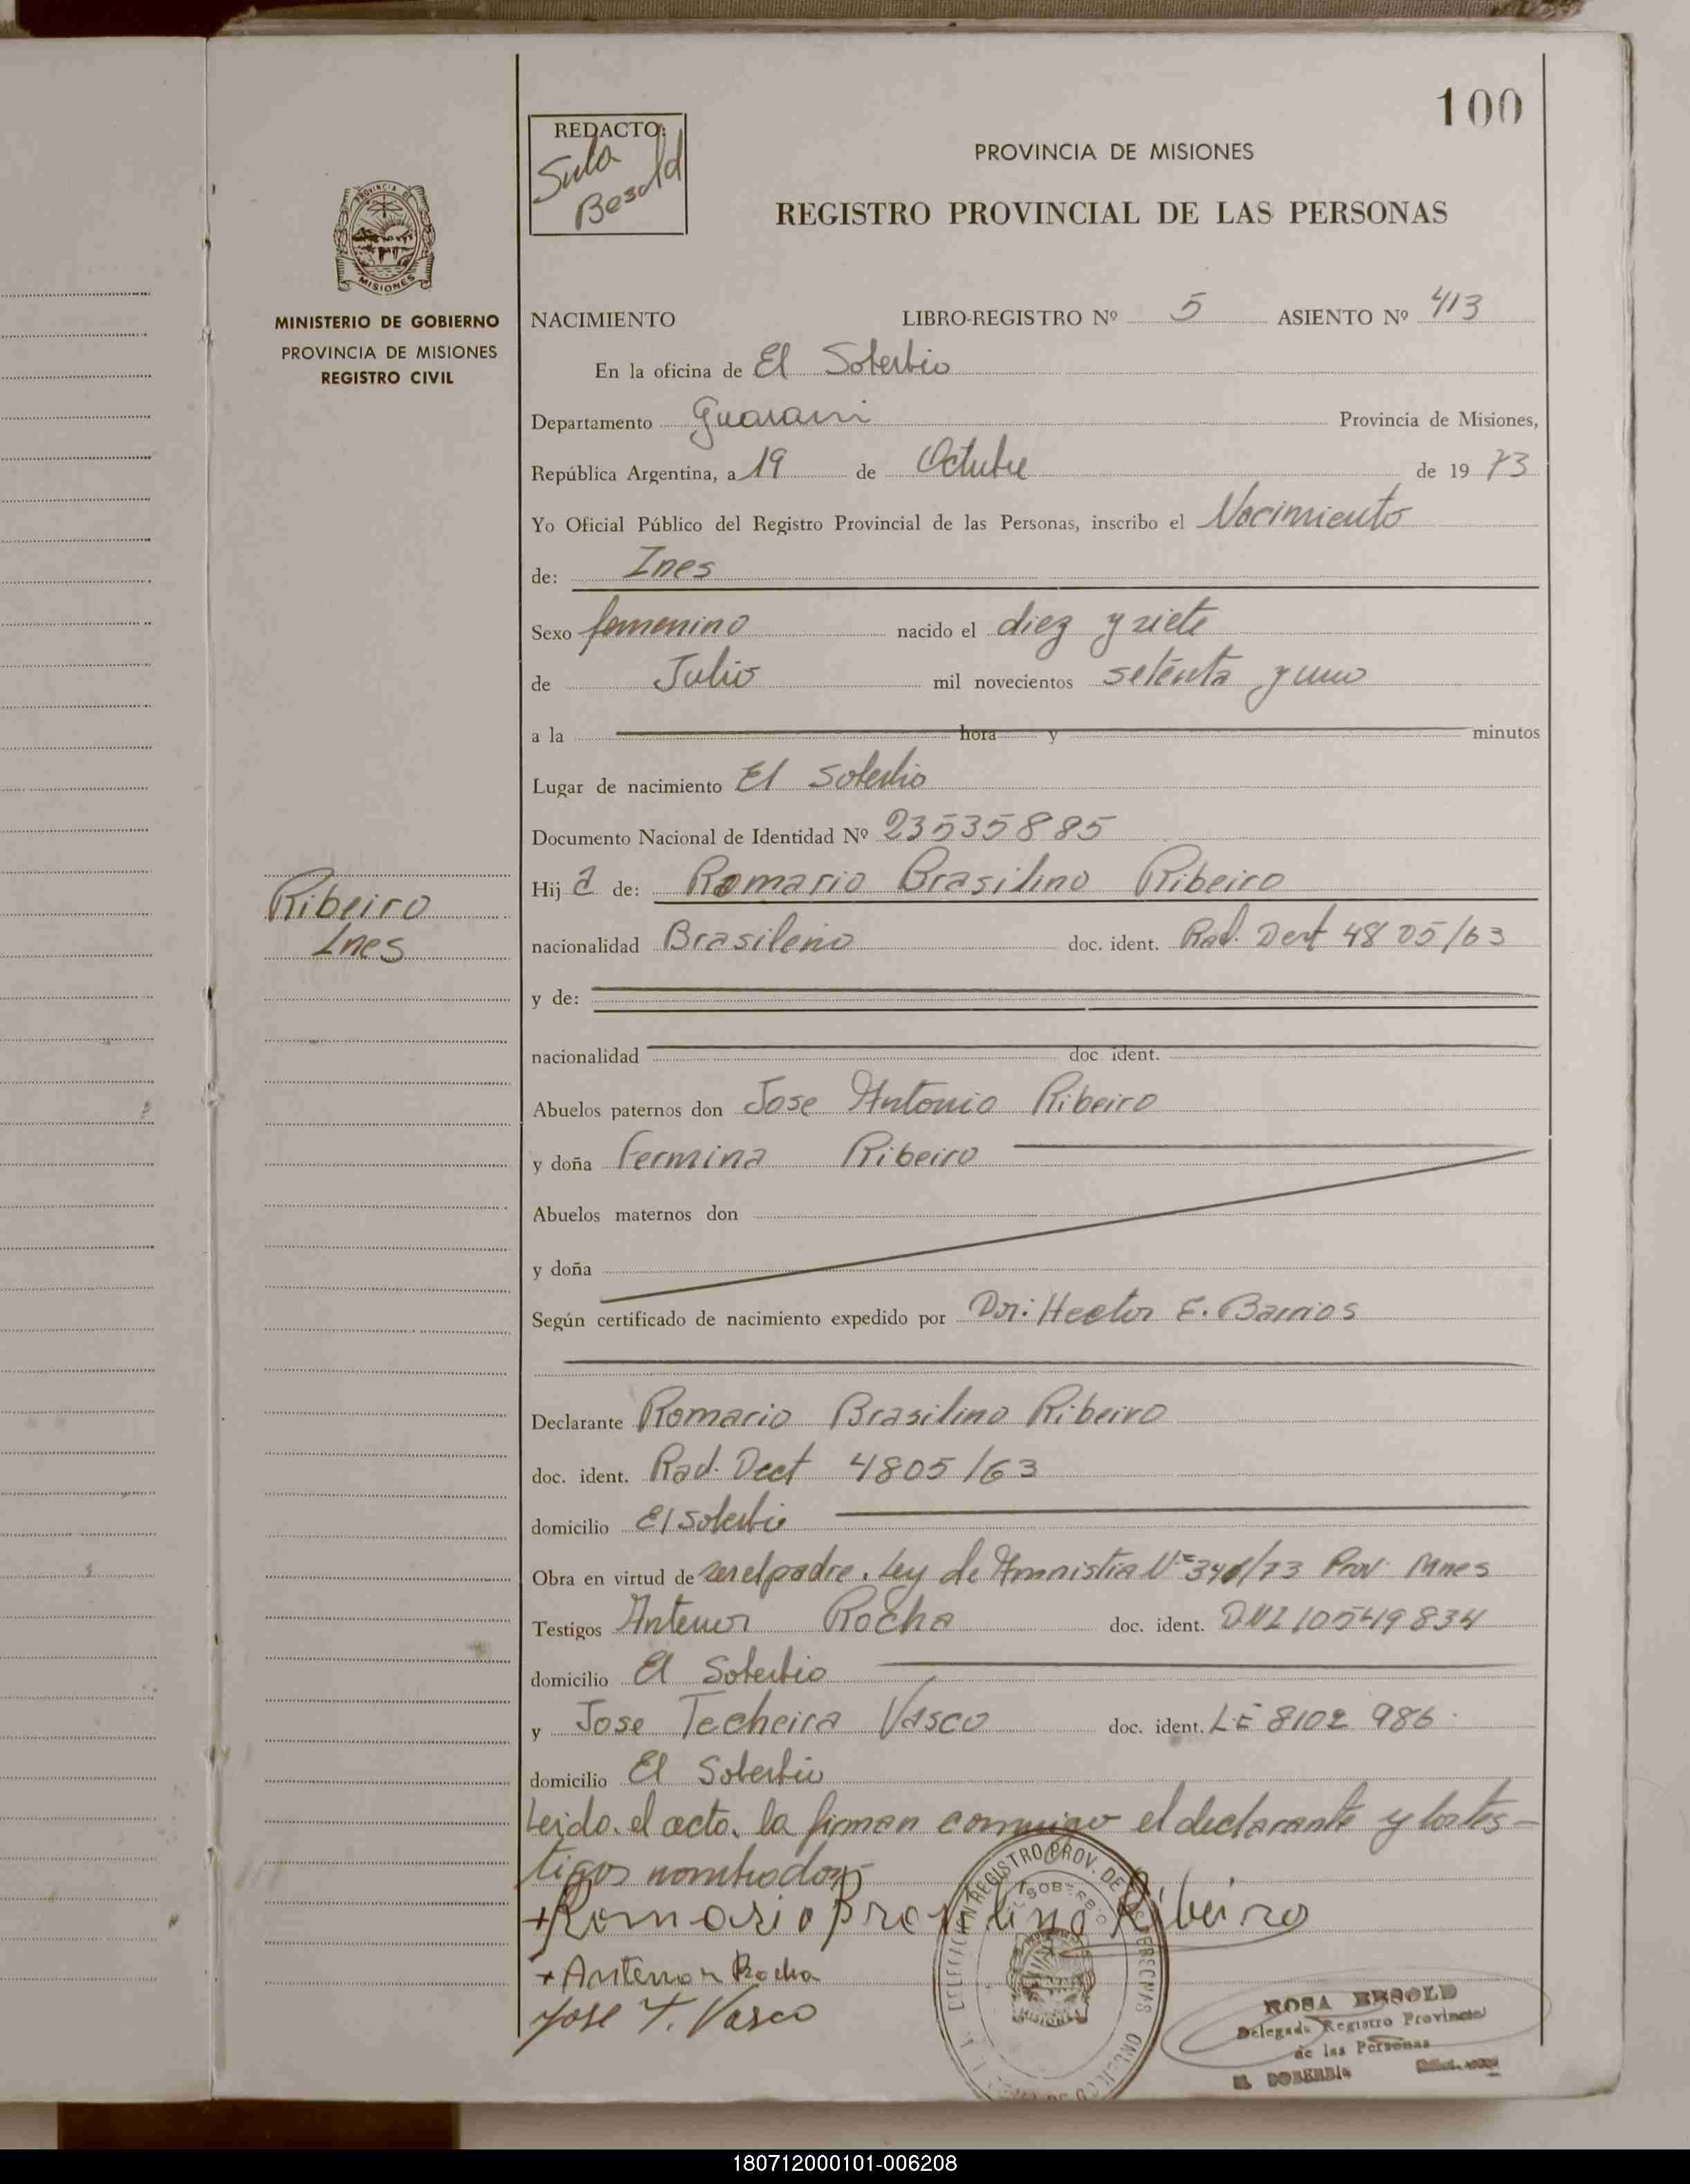 100
REDACTO:
Sula
Besold
PROVINCIA DE MISIONES
REGISTRO PROVINCIAL DE LAS PERSONAS
PROVINCIA DE
MISIONES
MINISTERIO DE GOBIERNO
PROVINCIA DE MISIONES
REGISTRO CIVIL
NACIMIENTO LIBRO-REGISTRO Nº 5 ASIENTO Nº 413
En la oficina de El Soberbio
Departamento Guarani Provincia de Misiones,
República Argentina, a 19 de Octubre de 19 73
Yo Oficial Público del Registro Provincial de las Personas, inscribo el Nacimiento
de: Ines
Sexo femenino nacido el diez y siete
de Julio mil novecientos setenta y uno
a la hora y minutos
Lugar de nacimiento El Soberbio
Documento Nacional de Identidad Nº 23535885
Hij a de: Romario Brasilino Ribeiro
Ribeiro
Ines
nacionalidad Brasileno doc. ident. Rad. Dect 4805/63
y de:
nacionalidad doc. ident.
Abuelos paternos don Jose Antonio Ribeiro
y doña Fermina Ribeiro
Abuelos maternos don
y doña
Según certificado de nacimiento expedido por Dr: Hector E. Barrios
Declarante Romario Brasilino Ribeiro
doc. ident. Rad. Dect 4805/63
domicilio El Soberbio
Obra en virtud de ser el padre. Ley de Amnistia Nº /73 Prov. Mnes
Testigos Antenor Rocha doc. ident. DNI 10549834
domicilio El Soberbio
y Jose Techeira Vasco doc. ident. LE 8102 986
domicilio El Soberbio
Leida el acta, la firman conmigo el declarante y los tes-
tigos nombrados-
+Romario Brasilino Ribeiro
+ Antenor Rocha
Jose T. Vasco
REGISTRO PROV. DE LAS PERSONAS
EL SOBERBIO
MISIONES
ROSA BESOLD
Delegada Registro Provincial
de las Personas
EL SOBERBIO
180712000101-006208